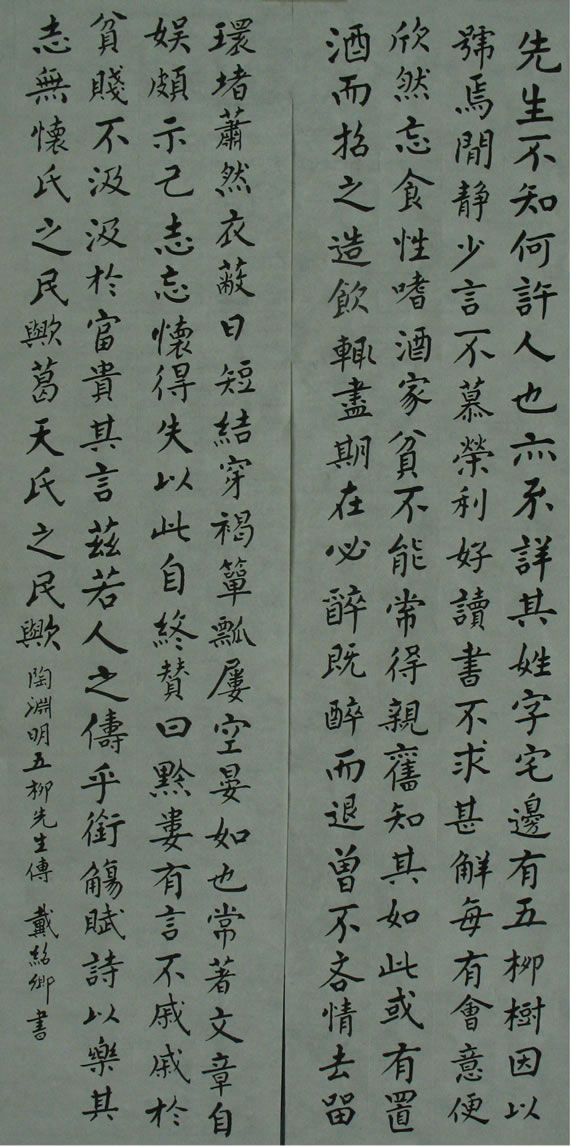 先生不知何許人也亦不詳其姓字宅邊有五柳樹因以
號焉閒靜少言不慕榮利好讀書不求甚解每有會意便
欣然忘食性嗜酒家貧不能常得親舊知其如此或有置
酒而招之造飲輒盡期在必醉既醉而退曾不吝情去留
環堵蕭然衣蔽日短結穿褐簞瓢屢空晏如也常著文章自
娛頗示己志忘懷得失以此自終贊曰黔婁有言不戚戚於
貧賤不汲汲於富貴其言茲若人之儔乎銜觴賦詩以樂其
志無懷氏之民歟葛天氏之民歟陶淵明五柳先生傳 戴紹卿書